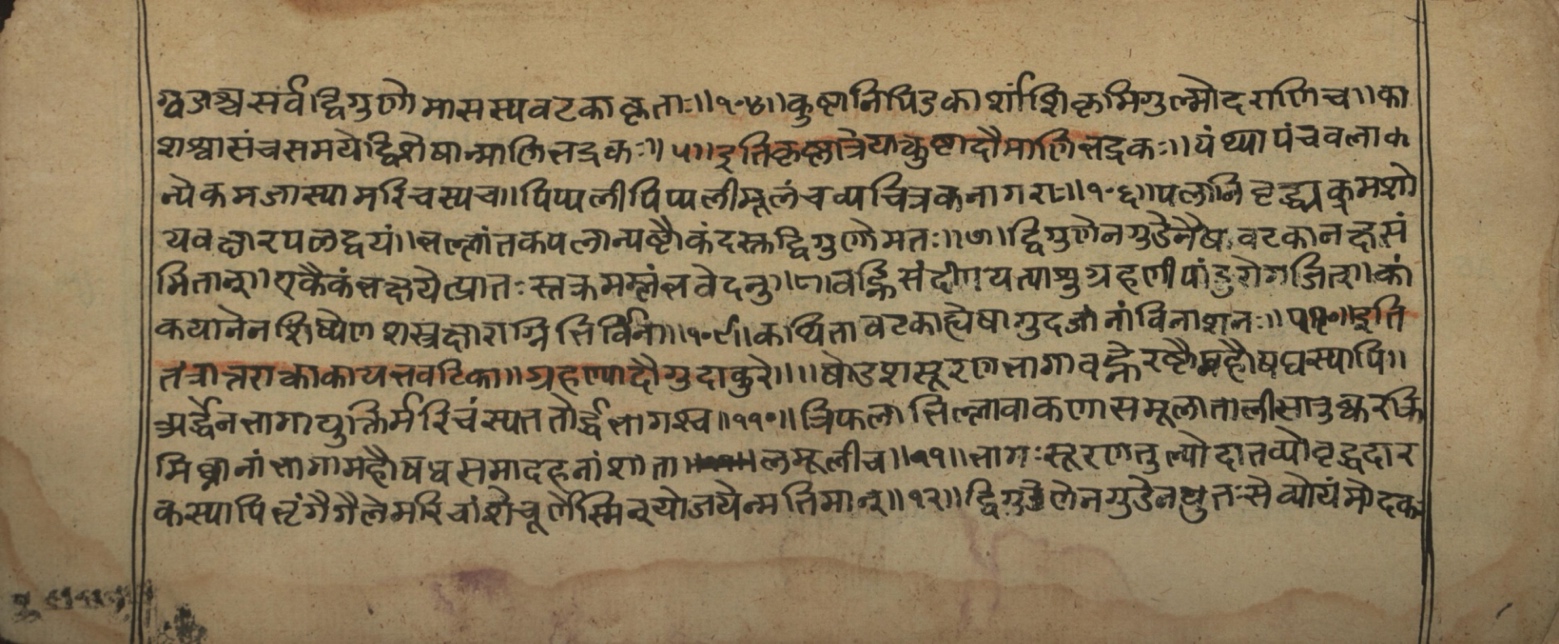 ग्वजश्च सर्वद्विगुणो मासस्य वटकाकृताः॥१०४॥कुष्टानिपिडकार्शांशिकृमिगुल्मोदराणिच॥का
शश्वासंचसमयेद्विशेषान्माणिभद्रकः॥५॥इतिकृष्णात्रेयात्कुष्टादौमाणिभद्रकः॥पंथ्यापंचवलाक
न्येकमजास्यामरिचस्यच॥पिप्पलीपिप्पलीमूलंचव्यचित्रकनागराः॥१०६॥पलानिवृद्ध्याक्रमशो
यवक्षारपळद्वयं॥भल्लांतकपलान्यष्टौकंदस्तद्विगुणोमतः॥७॥द्विगुणेनगुडेनैषवटकानक्षसं
मितान्॥एकैकंभक्षयेत्प्रातःस्तक्रमम्लंभवेदनु॥८॥वह्निसंदीपयत्याशुग्रहणीपांडुरोगजित्॥कां
कयानेनशिष्येणशस्त्रक्षाराग्निभिर्विना॥१०९॥कथितावटकाह्येषागुदजांनांविनाशनः॥इति
तंत्रान्तराकाकायनवटिका॥ग्रहण्यादौगुदाकुरे॥॥षोडशसूरणभागावह्नेरष्टौमहौषधस्यापि॥
अर्द्धेनभागयुक्तिर्मरिचंस्यततोर्द्धभागश्च॥११०॥त्रिफला कणासमूलातालीसारुष्करक्रि
मिघ्नानांभागामहौषधसमादहनांशाता लमूलीच॥११॥भागःसूरणतुल्योदातव्योवृद्धदार
कस्यापिभृंगैगैलेमरिचांशैचूर्णेस्मिन्योजयेन्मतिमान्॥१२॥द्विगुडेणेनगुडेनयुतःसेव्योयंमोदकः